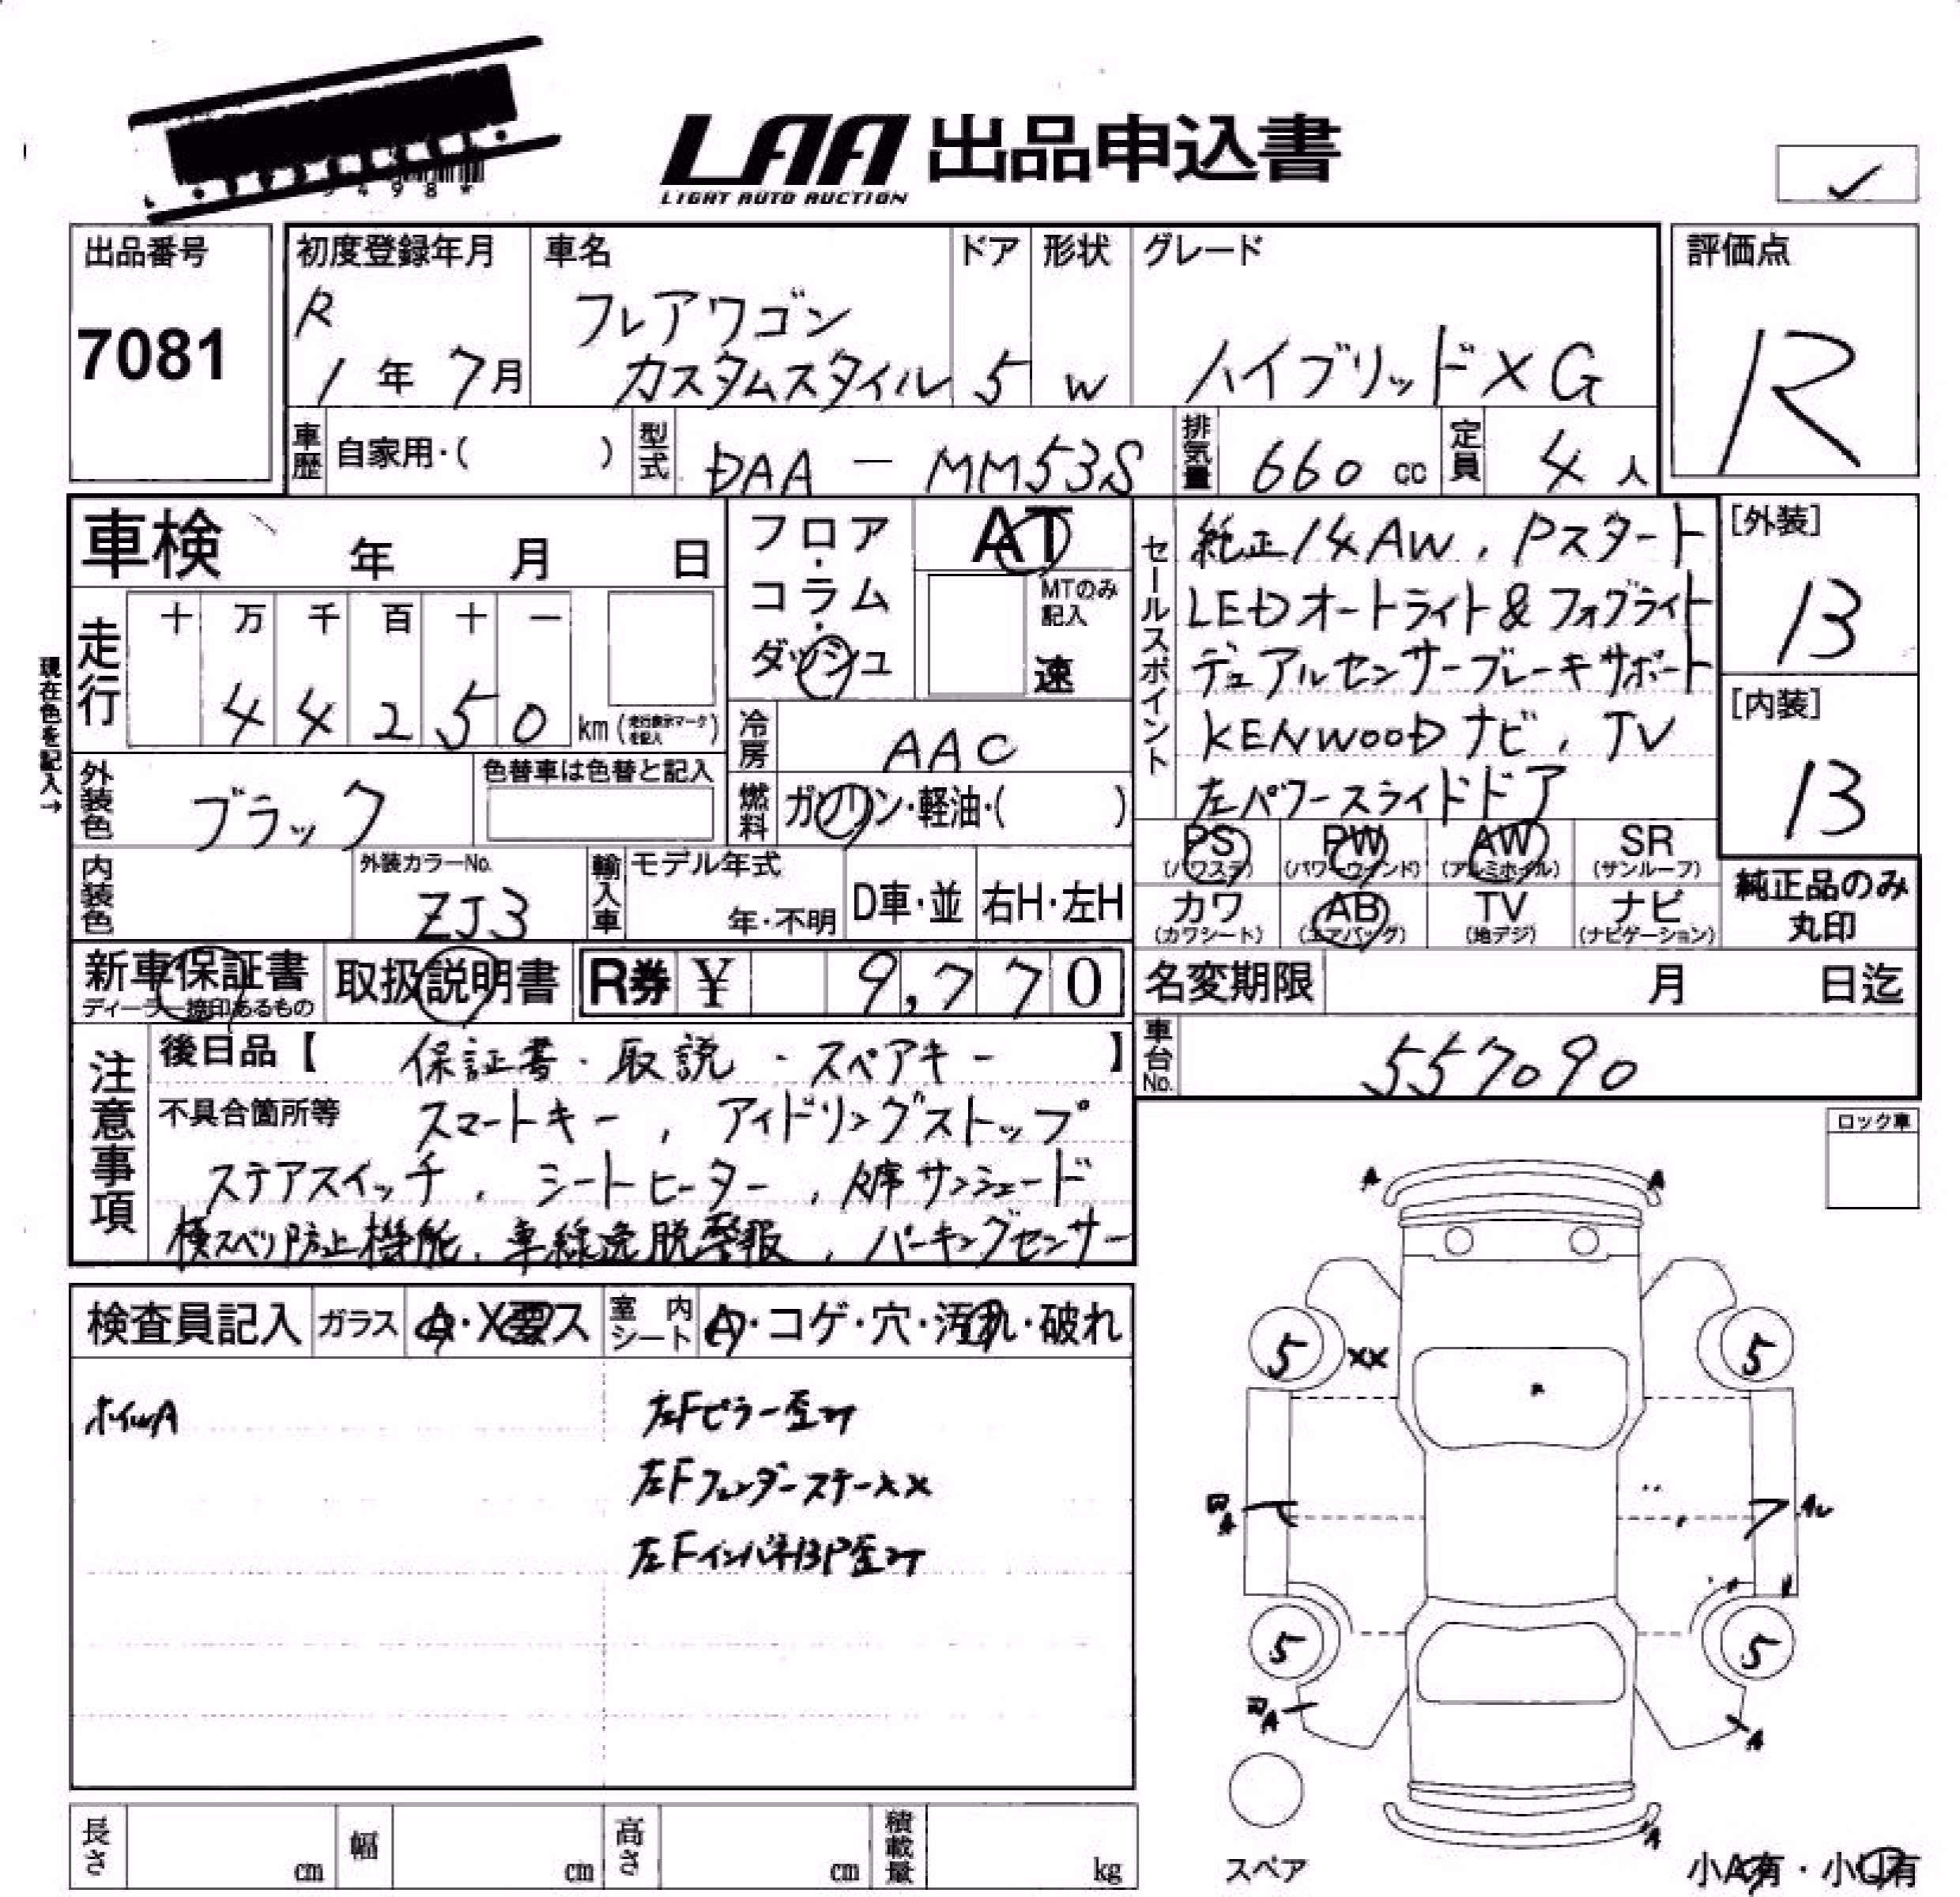 498*
LAA 出品申込書
LIGHT AUTO AUCTION
出品番号
7081
初度登録年月
R
1年 7月
車名
フレアワゴン
カスタムスタイル
ドア
5
形状
W
グレード
ハイブリッドXG
評価点
R
車歴 自家用・( )
型式 DAA - MM53S
排気量 660 cc
定員 4人
車検 年 月 日
フロア・コラム・ダッシュ
AT
MTのみ記入
速
セールスポイント
純正14AW, Pスタート
LEDオートライト&フォグライト
デュアルセンサーブレーキサポート
KENWOODナビ, TV
左パワースライドドア
[外装]
13
[内装]
13
現在色を記入→
走行
十 万 千 百 十 一
44250 km (走行表示マークを記入)
冷房 AAC
外装色 ブラック
色替車は色替と記入
燃料 ガソリン・軽油・( )
PS (パワステ)
PW (パワーウインド)
AW (アルミホイル)
SR (サンルーフ)
内装色
外装カラーNo.
ZJ3
輸入車
モデル年式
年・不明
D車・並
右H・左H
カワ (カワシート)
AB (エアバッグ)
TV (地デジ)
ナビ (ナビゲーション)
純正品のみ
丸印
新車保証書
ディーラー捺印あるもの
取扱説明書
R券 ¥ 9,770
名変期限 月 日迄
車台No. 557090
注意事項
後日品【 保証書・取説・スペアキー 】
不具合箇所等 スマートキー, アイドリングストップ
ステアスイッチ, シートヒーター, 後席サンシェード
横スベリ防止機能, 車線逸脱警報, パーキングセンサー
ロック車
検査員記入
ガラス A・X要ス
室内シート A・コゲ・穴・汚れ・破れ
ホイルA
左Fピラー歪み
左Fフェンダーステー××
左FインパネBP歪み
A A
5 XX 5
A
5 5
A A
A
スペア
小A有・小U有
長さ cm
幅 cm
高さ cm
積載量 kg